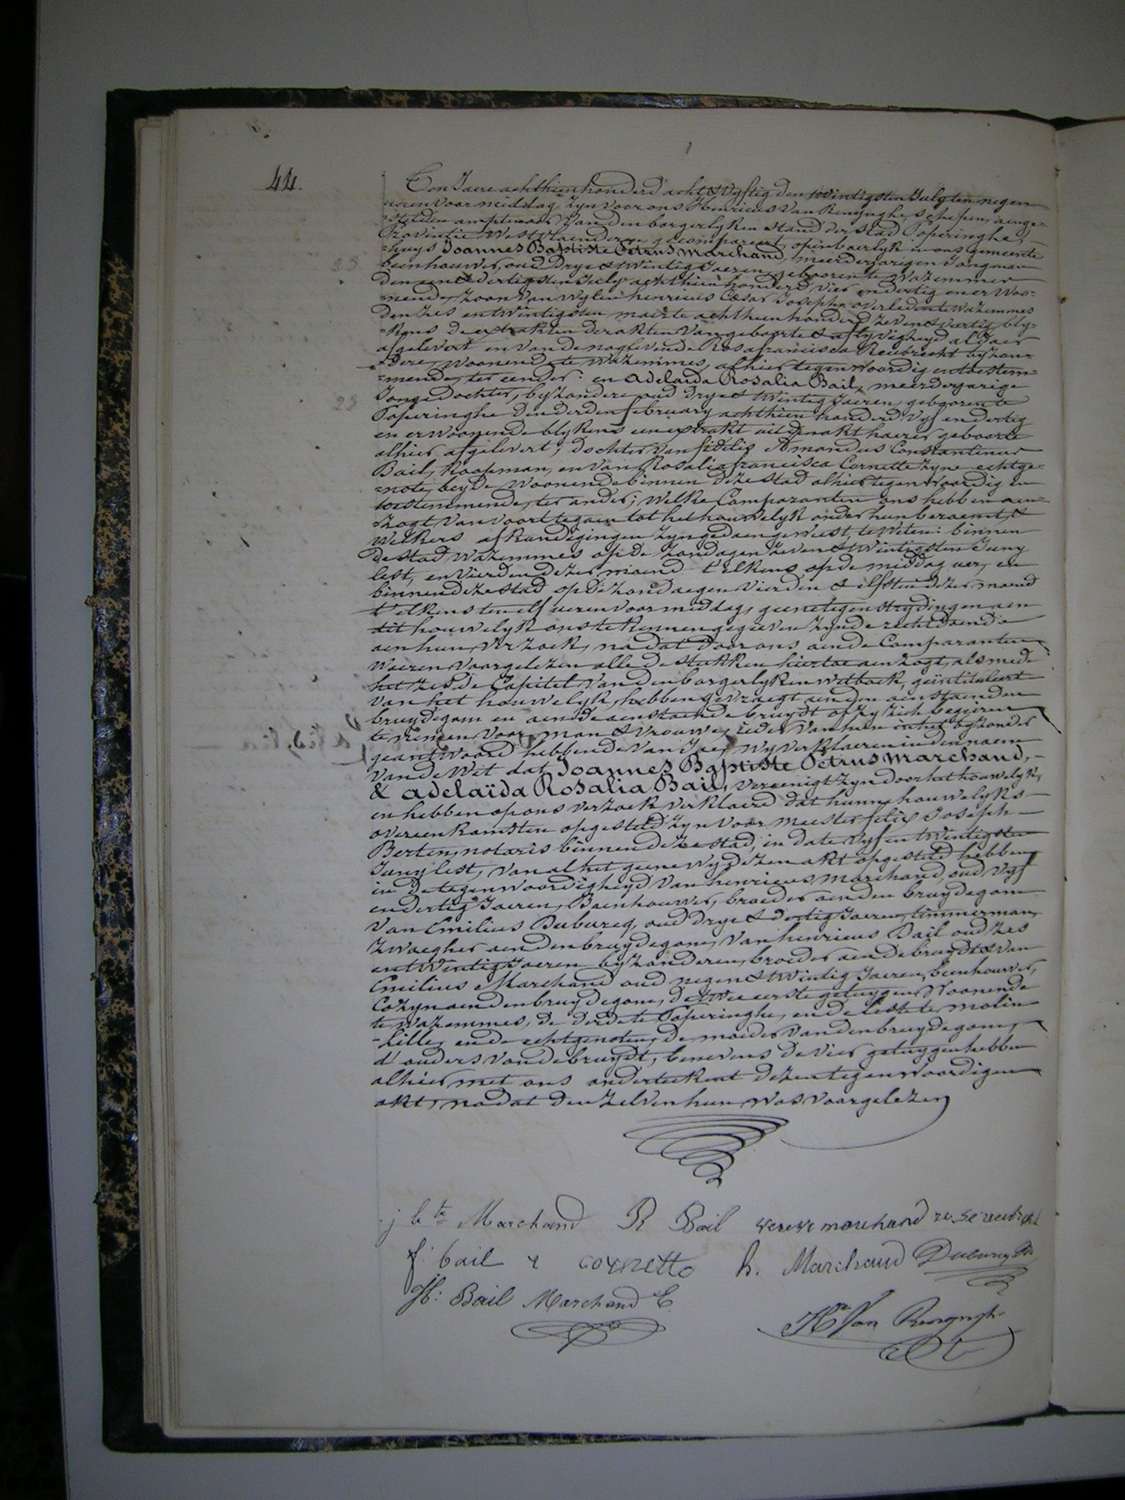 44.
Ten Jaere achthien honderd acht & vyftig den twintigsten July ten negen
uren voormiddag, zyn voor ons Henricus Van Renynghe, schepen, aenge-
-stelden amptenaer van den borgerlyken stand der stad Poperinghe,
Provintie Westvlaenderen, gecompareert openbaerlyk in ons gemeente
-huys Joannes Baptiste Petrus Marchand, meerderjarigen Jongman
beenhouwer, oud drye & twintig Jaeren, geboren te Wazemmes
den een & dertigsten July achthien honderd vier en dertig en er woo-
-nende, zoon van wylen henricus Cesar Joseph, overleden te Wazemmes
den zes en twintigsten maerte achthien honderd zeven & veertig, bly-
-kens de extrakten der akten van geboorte & aflyvigheyd alhier
afgelevert en van de nogleevende Rosa francisca Reubrecht byzon-
-dere, woonende te Wazemmes, alhier tegenwoordig en toestem-
-mende, ter eender: en Adelaïda Rosalia Bail, meerderjarige
Jonge dochter, byzondere, oud drye & twintig Jaeren, geboren te
Poperinghe den derden february achthien honderd vyf en dertig
en er woonende blykens een extrakt uit de akt haerer geboorte
alhier afgelevert, dochter van fidelis Amandus Constantinus
Bail, koopman, en van Rosalia francisca Cornette zyne echtge-
-note, beyde woonende binnen deze stad alhier tegenwoordig en
toestemmende, ter ander; welke Comparanten ons hebben aen-
zogt van voort te gaen tot het houwelyk onder hun beraemt, &
welkers afkondigingen zyn gedaen geweest, te weten: binnen
de stad Wazemmes op de zondagen zeven & twintigsten Juny
lest, en vierden dezer maend t'elkens op de middag uer, en
binnen deze stad op de zondagen vierden & elfsten dezer maend
t'elkens ten elf ueren voormiddag, geene tegenstrydingen aen
dit houwelyk ons te kennen gegeven zynde rechtdoende
aen hun verzoek, na dat door ons aen de Comparanten
waeren voorgelezen alle de stukken hiertoe aenzogt, als mede
het zesde Capitel van den borgerlyken wetboek, geintituleert
van het houwelyk, hebben gevraegt aen den aenstaenden
bruydegom en aen de aenstaende bruydt of zy zich begeren
te nemen voor man & vrouwe, ieder van hen in het byzonder
geantwoord hebbende van Jae, wy verklaeren in den naem
van de Wet dat Joannes Baptiste Petrus Marchand,
& Adelaïda Rosalia Bail, vereenigt zyn door het houwelyk,
en hebben op ons verzoek verklaerd dat hunne houwelyks
overeenkomsten opgesteld zyn voor meester felix Joseph
Berten, notaris binnen deze stad, in date vyf en twintigsten
Juny lest, van al het geene wy dezen akt opgesteld hebben
in de tegenwoordigheyd van henricus Marchand, oud vyf
en dertig Jaeren, Beenhouwer, broeder aen den bruydegom
van Emilius Dubureq, oud drye & dertig Jaeren, timmerman,
zwaegher aen den bruydegom, van henricus Bail oud zes
en twintig Jaeren byzonderen, broeder aen de bruydt & van
Emilius Marchand oud negen & twintig Jaeren, beenhouwer,
Cozyn aen den bruydegom, de twee eerste getuygen woonende
te Wazemmes, de derde te Poperinghe, en de leste te molin-
-lille, en de echtgenoten, de moeder van den bruydegom,
d'ouders van de bruydt, benevens de vier getuygen hebben
alhier met ons onderteekent dezen tegenwoordigen
akt, na dat den zelven hun was voorgelezen
j bte Marchand R Bail veuve marchand
f: bail & Cornette h. Marchand Dubureq
H: Bail Marchand E
Hri Van Renynghe